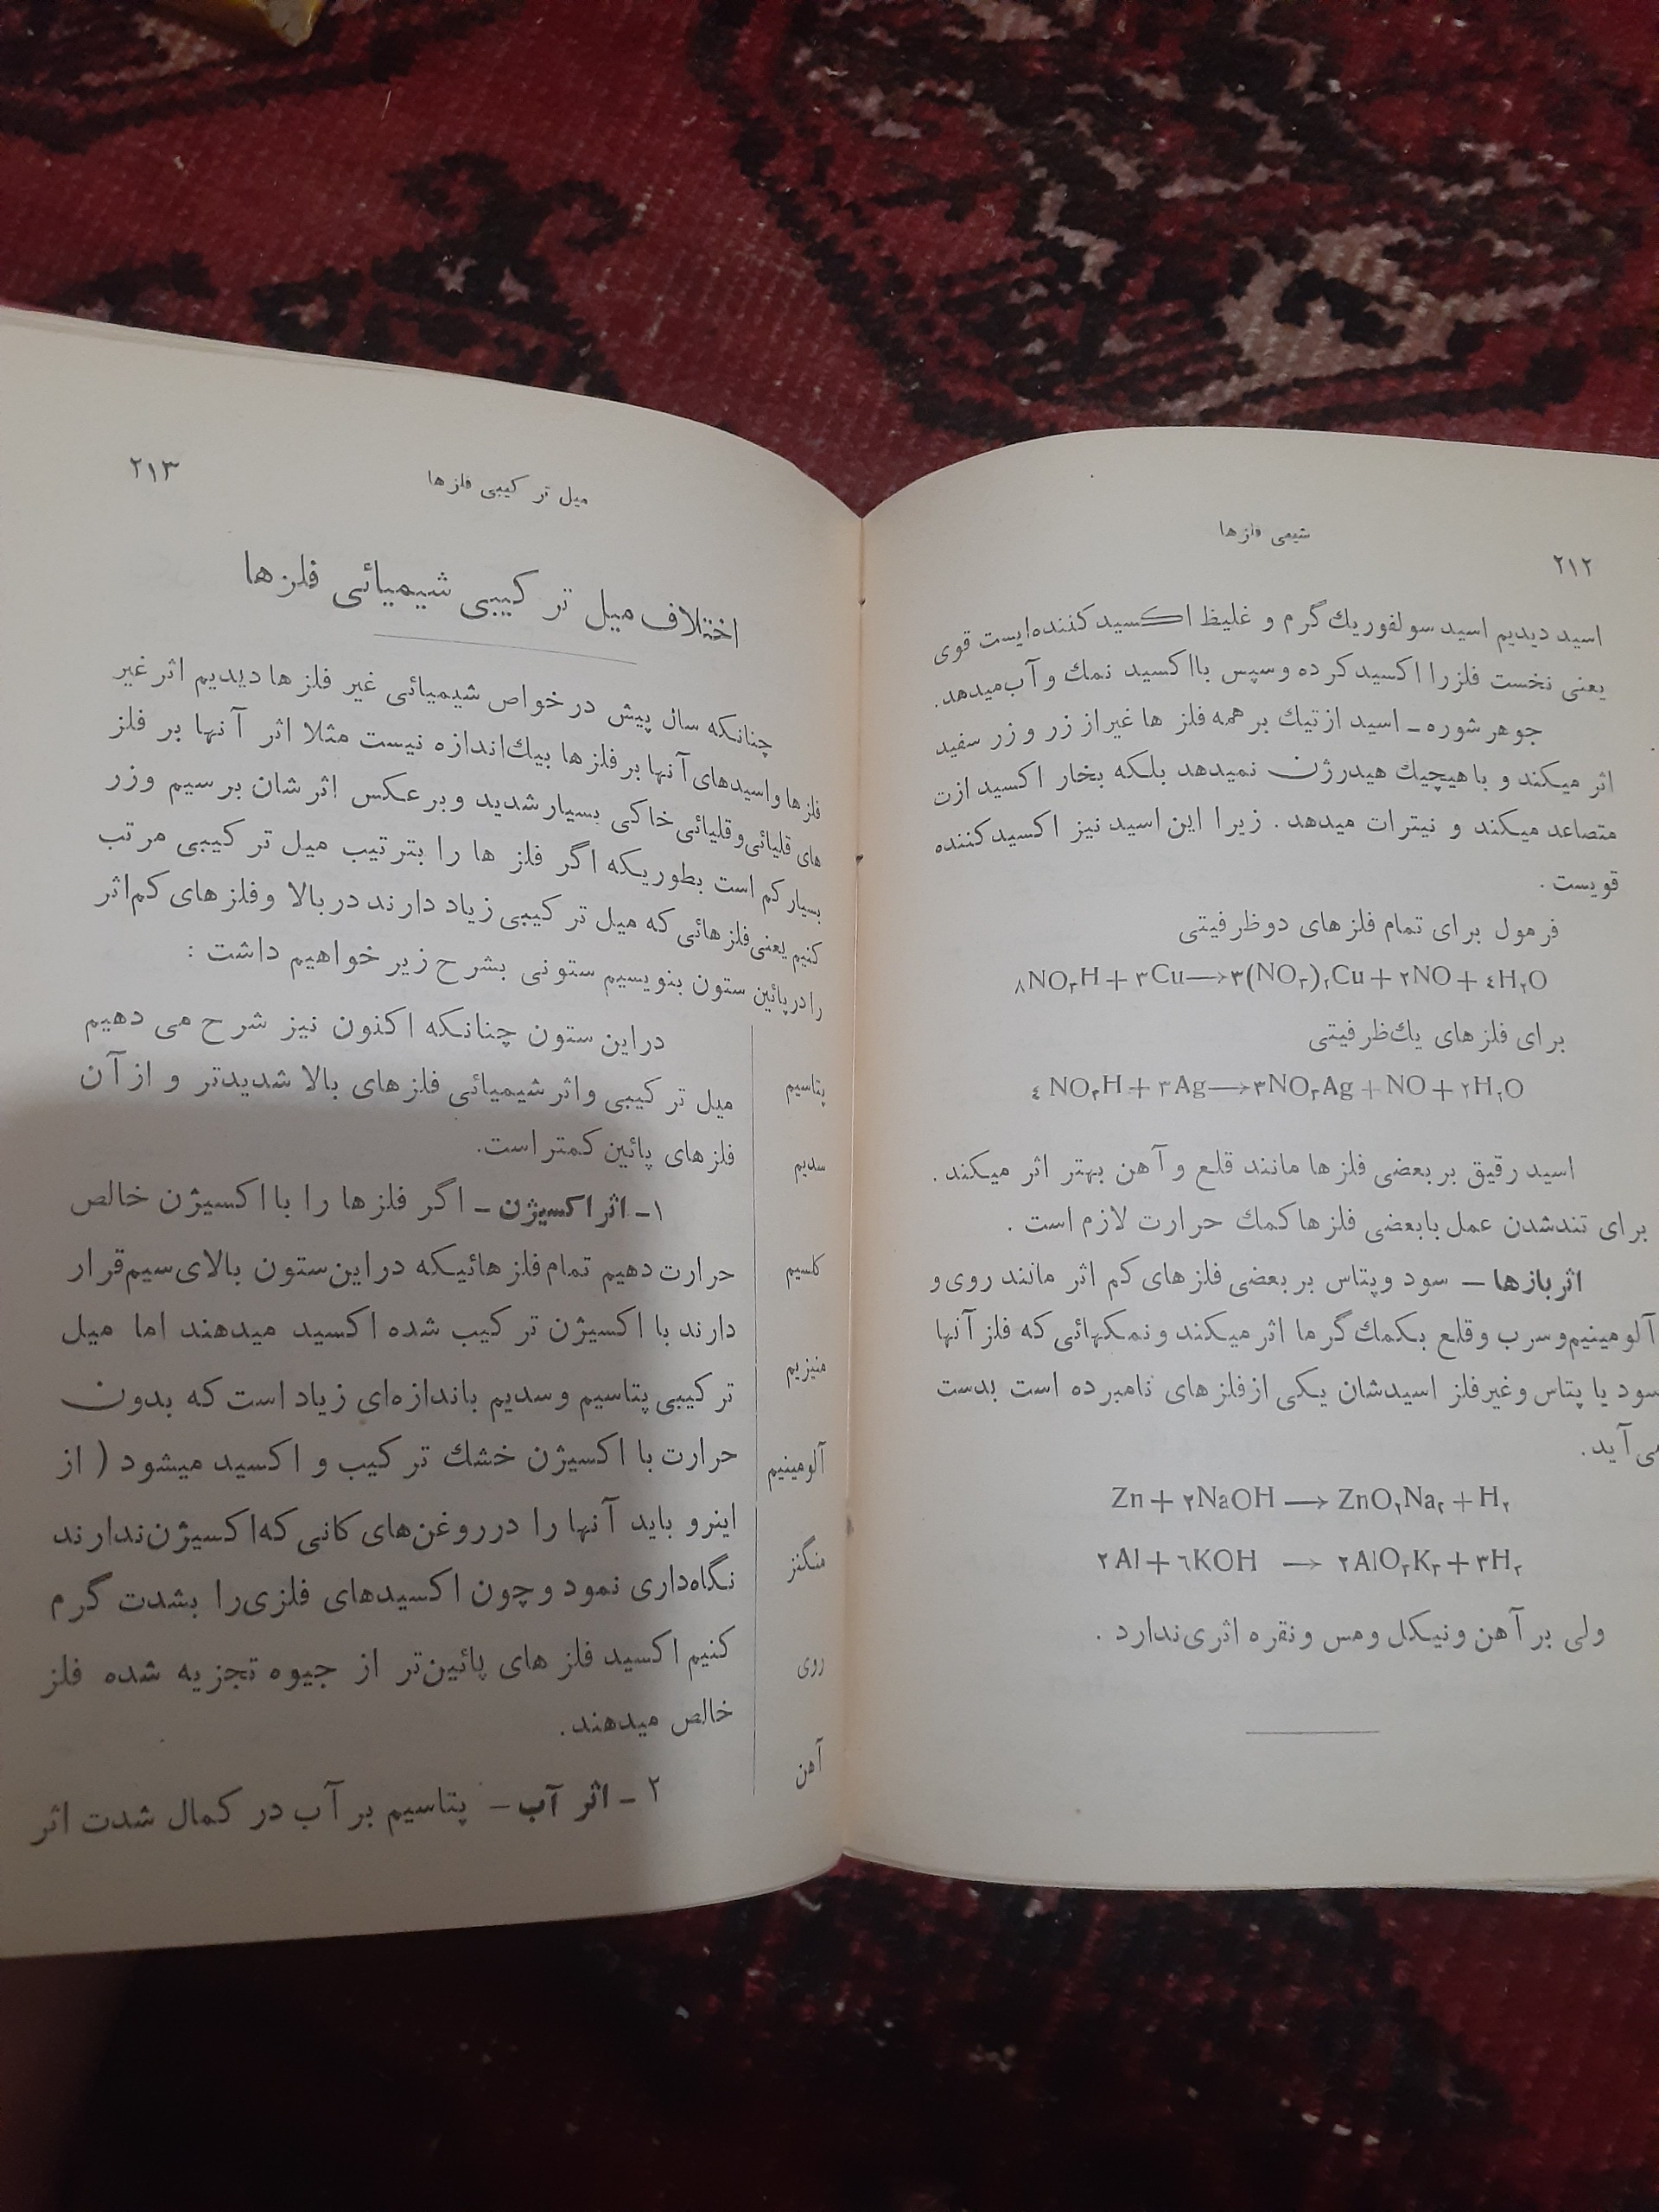 شیمی فلزها
۲۱۲
اسید دیدیم اسید سولفوریك گرم و غلیظ اکسید کننده‌ایست قوی
یعنی نخست فلزرا اکسید کرده و سپس با اکسید نمك و آب میدهد.
جوهر شوره ـ اسید ازتیك بر همه فلز ها غیر از زر و زر سفید
اثر میکند و با هیچیك هیدرژن نمیدهد بلکه بخار اکسید ازت
متصاعد میکند و نیترات میدهد . زیرا این اسید نیز اکسید کننده
قویست .
فرمول برای تمام فلزهای دو ظرفیتی
۸NO۳H + ۳Cu ⟶ ۳(NO۳)۲Cu + ۲NO + ٤H۲O
برای فلزهای یك‌ظرفیتی
٤NO۳H + ۳Ag ⟶ ۳NO۳Ag + NO + ۲H۲O
اسید رقیق بر بعضی فلز ها مانند قلع و آهن بهتر اثر میکند .
برای تندشدن عمل بابعضی فلزها کمك حرارت لازم است .
اثر بازها — سود و پتاس بر بعضی فلزهای کم اثر مانند روی و
آلومینیم و سرب و قلع بکمك گرما اثر میکند و نمکهائی که فلز آنها
سود یا پتاس و غیرفلز اسیدشان یکی از فلزهای نامبرده است بدست
می‌آید.
Zn + ۲NaOH ⟶ ZnO۲Na۲ + H۲
۲Al + ٦KOH ⟶ ۲AlO۳K۳ + ۳H۲
ولی بر آهن و نیکل و مس و نقره اثری ندارد .
میل ترکیبی فلزها
۲۱۳
اختلاف میل ترکیبی شیمیائی فلزها
چنانکه سال پیش در خواص شیمیائی غیر فلز ها دیدیم اثر غیر
فلزها و اسیدهای آنها بر فلزها بیك اندازه نیست مثلا اثر آنها بر فلز
های قلیائی و قلیائی خاکی بسیار شدید و برعکس اثرشان بر سیم و زر
بسیار کم است بطوریکه اگر فلز ها را بترتیب میل ترکیبی مرتب
کنیم یعنی فلزهائی که میل ترکیبی زیاد دارند در بالا و فلزهای کم‌اثر
را در پائین ستون بنویسیم ستونی بشرح زیر خواهیم داشت :
پتاسیم
سدیم
کلسیم
منیزیم
آلومینیم
منگنز
روی
آهن
در این ستون چنانکه اکنون نیز شرح می دهیم
میل ترکیبی و اثر شیمیائی فلزهای بالا شدیدتر و از آن
فلزهای پائین کمتر است.
۱ـ اثر اکسیژن ـ اگر فلزها را با اکسیژن خالص
حرارت دهیم تمام فلزهائیکه در این ستون بالای سیم قرار
دارند با اکسیژن ترکیب شده اکسید میدهند اما میل
ترکیبی پتاسیم و سدیم باندازه‌ای زیاد است که بدون
حرارت با اکسیژن خشك ترکیب و اکسید میشود ( از
اینرو باید آنها را در روغن‌های کانی که اکسیژن ندارند
نگاه‌داری نمود و چون اکسیدهای فلزی را بشدت گرم
کنیم اکسید فلز های پائین‌تر از جیوه تجزیه شده فلز
خالص میدهند.
۲ ـ اثر آب ـ پتاسیم بر آب در کمال شدت اثر